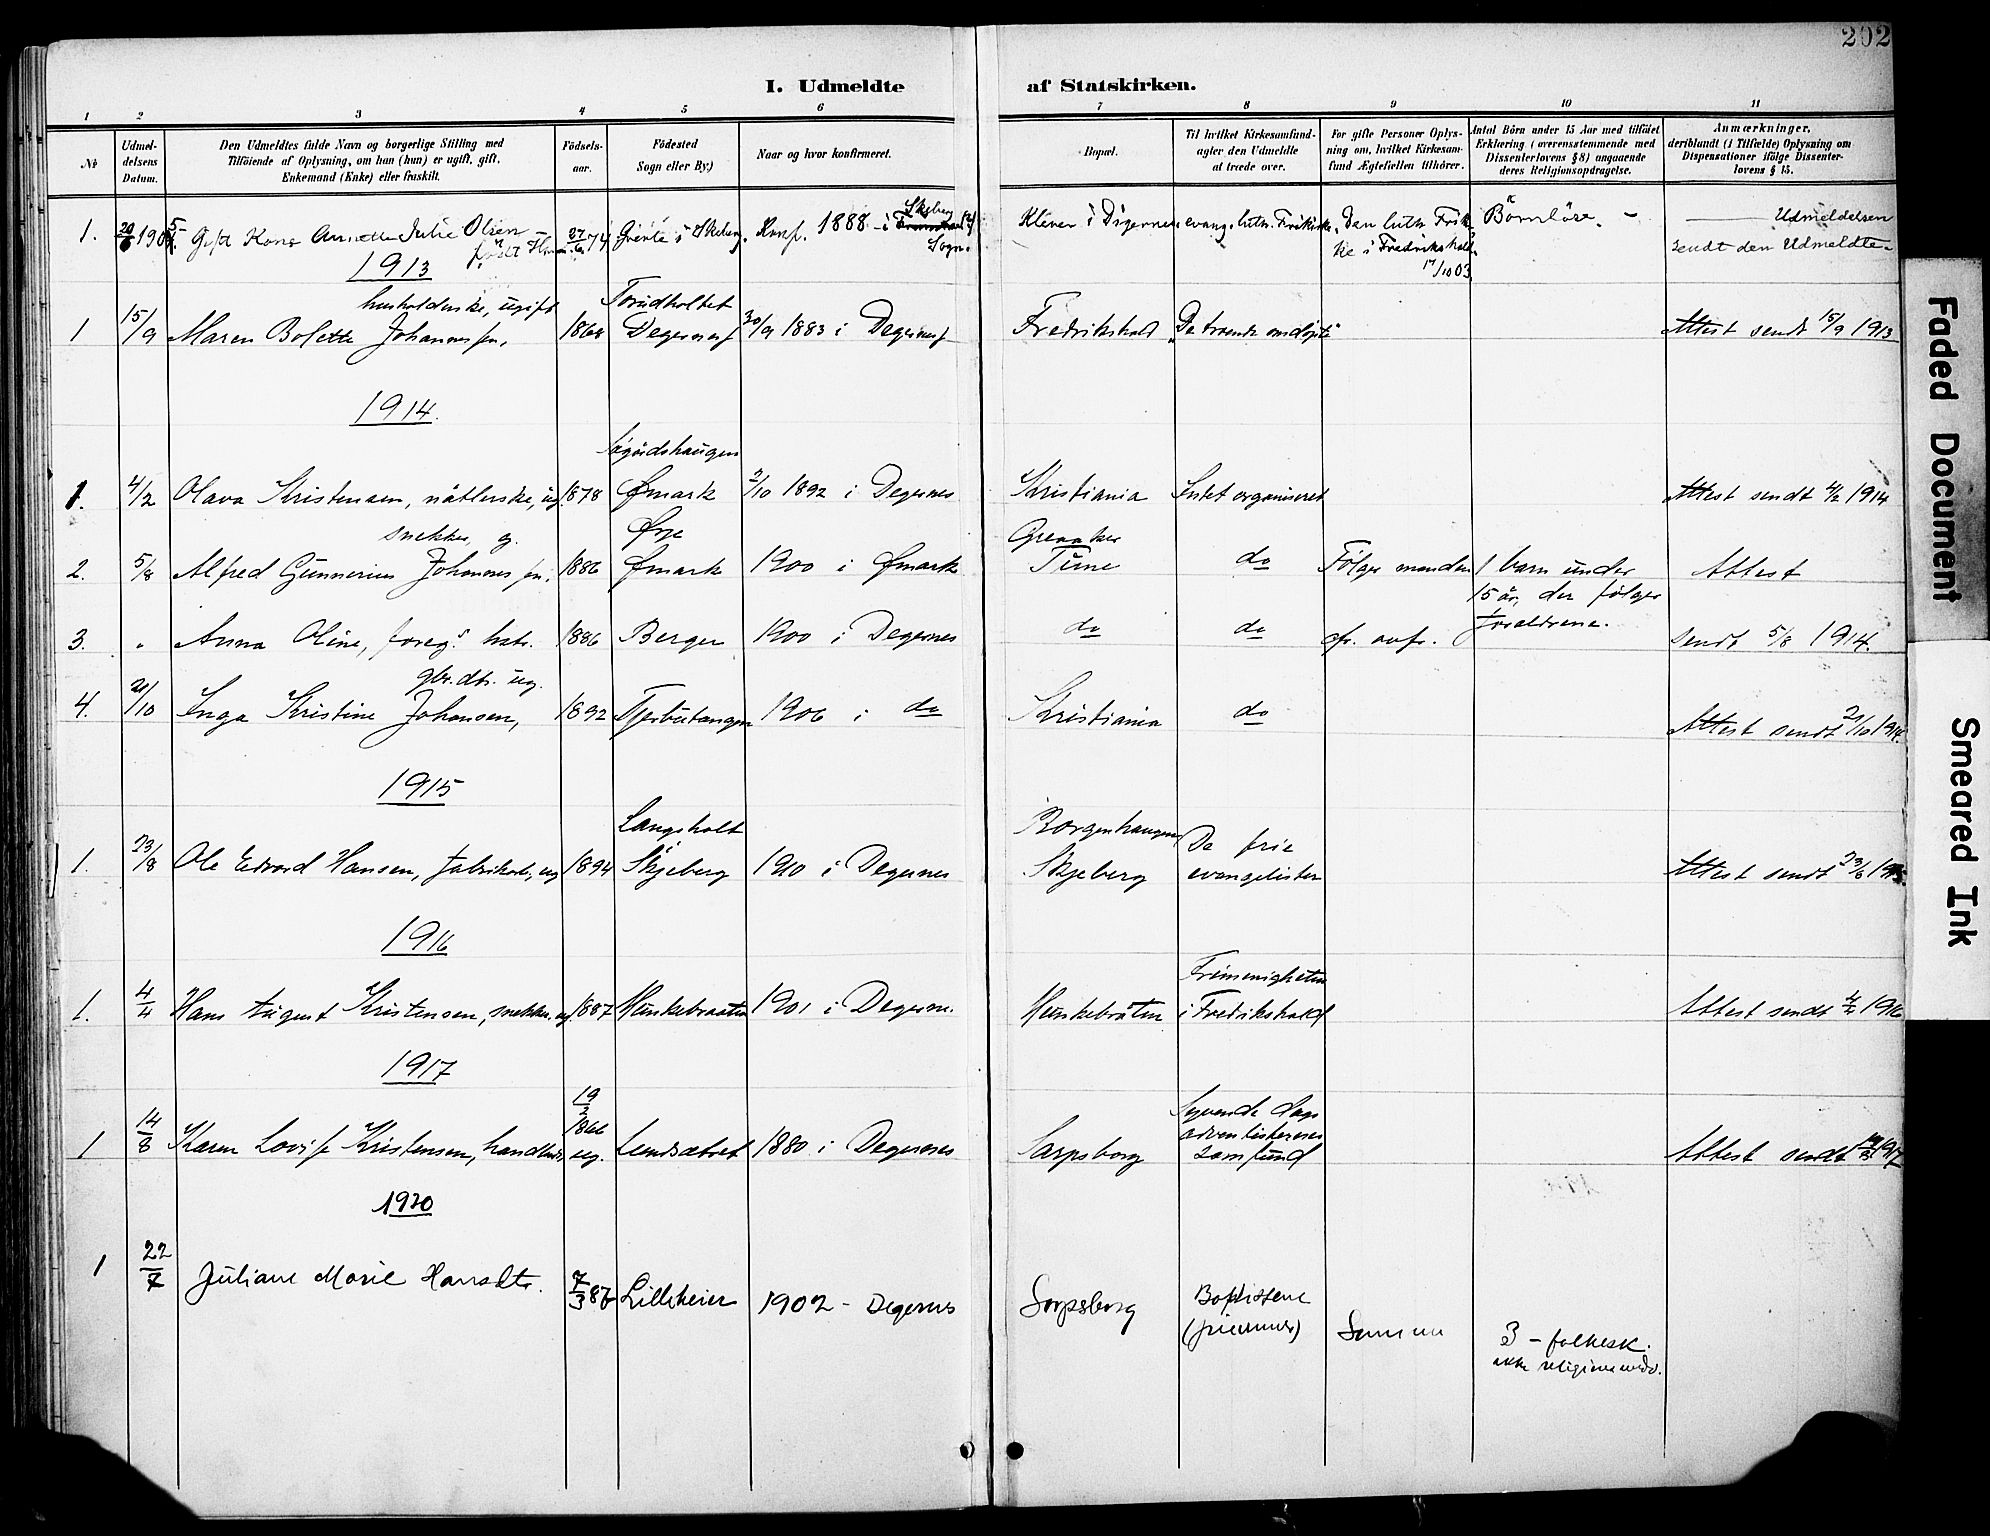 202
I. Udmeldte af Statskirken.
1 2 3 4 5 6 7 8 9 10 11
No
Udmeldelsens Datum.
Den Udmeldtes fulde Navn og borgerlige Stilling med
Tilföiende af Oplysning, om han (hun) er ugift, gift,
Enkemand (Enke) eller fraskilt.
Födselsaar.
Födested
Sogn eller By.)
Naar og hvor konfirmeret.
Bopæl.
Til hvilket Kirkesamfund
agter den Udmeldte
at træde over.
For gifte Personer Oplysning
om, hvilket Kirkesamfund
Ægtefællen tilhörer.
Antal Börn under 15 Aar med tilföiet
Erklæring (overensstemmende med
Dissenterlovens § 8) angaaende
deres Religionsopdragelse.
Anmærkninger,
deriblandt (i Tilfælde) Oplysning om
Dispensationer ifölge Dissenterlovens § 15.
1. Gift Kone Annette Julie Olsen 27/6 74 i Skeberg. Konf. 1888 i Skeberg Sogn. Klever i Digernes evang. luth. Frikirke. Den luth. Frikirke i Fredrikshald 17/10 03 Börnlöse. — Udmeldelsen
sendt den Udmeldte
1913
husholderske, ugift Torudholtet
1 15/9 Maren Bolette Johannesen, 1868 Degernes 30/9 1883 i Degernes Fredrikshald De troende omdøpte Attest sendt 15/9 1913
1914
1. 4/2 Olava Kristensen, nåtlerske, ug. 1878 Ømark 2/10 1892 i Degernes Kristiania Intet organiseret Attest sendt 4/2 1914
snekker, g. Ørje Greaaker
2. 5/8 Alfred Gunnerius Johannesen, 1886 Ømark 1900 i Ømark Tune do Følger manden 1 barn under
15 år, der følger
forældrene. Attest
3. " Anna Oline, foreg.s hstr. 1886 Berger 1900 i Degernes do do cfr. ovfr. sendt 5/8 1914.
gbr. dtr. ug.
4. 21/10 Inga Kristine Johansen, 1892 Tjerbutangen 1906 i do Kristiania do Attest sendt 21/10 1914.
1915
Langsholt Borgenhaugen De frie
1. 23/8 Ole Edvard Hansen, fabrikarb., ug 1894 Skjeberg 1910 i Degernes Skjeberg evangelister Attest sendt 23/8 1915.
1916
Frimenigheten
1. 4/4 Hans August Kristensen, snekker, ug. 1887 Munkebraaten 1901 i Degernes Munkebråten i Fredrikshald Attest sendt 4/4 1916
1917
19/2 1866 Syvende dags
adventisternes
samfund
1 14/8 Karen Lovise Kristensen, ug. 1880 i Degernes Sarpsborg Attest sendt 14/8 1917
1920
1 22/7 Juliane Marie Hansdtr. 7/3 87 Lilleheier 1902 - Degernes Sarpsborg Baptistene Samme 3 - folkesk.
ikke
Faded Document
Smeared Ink